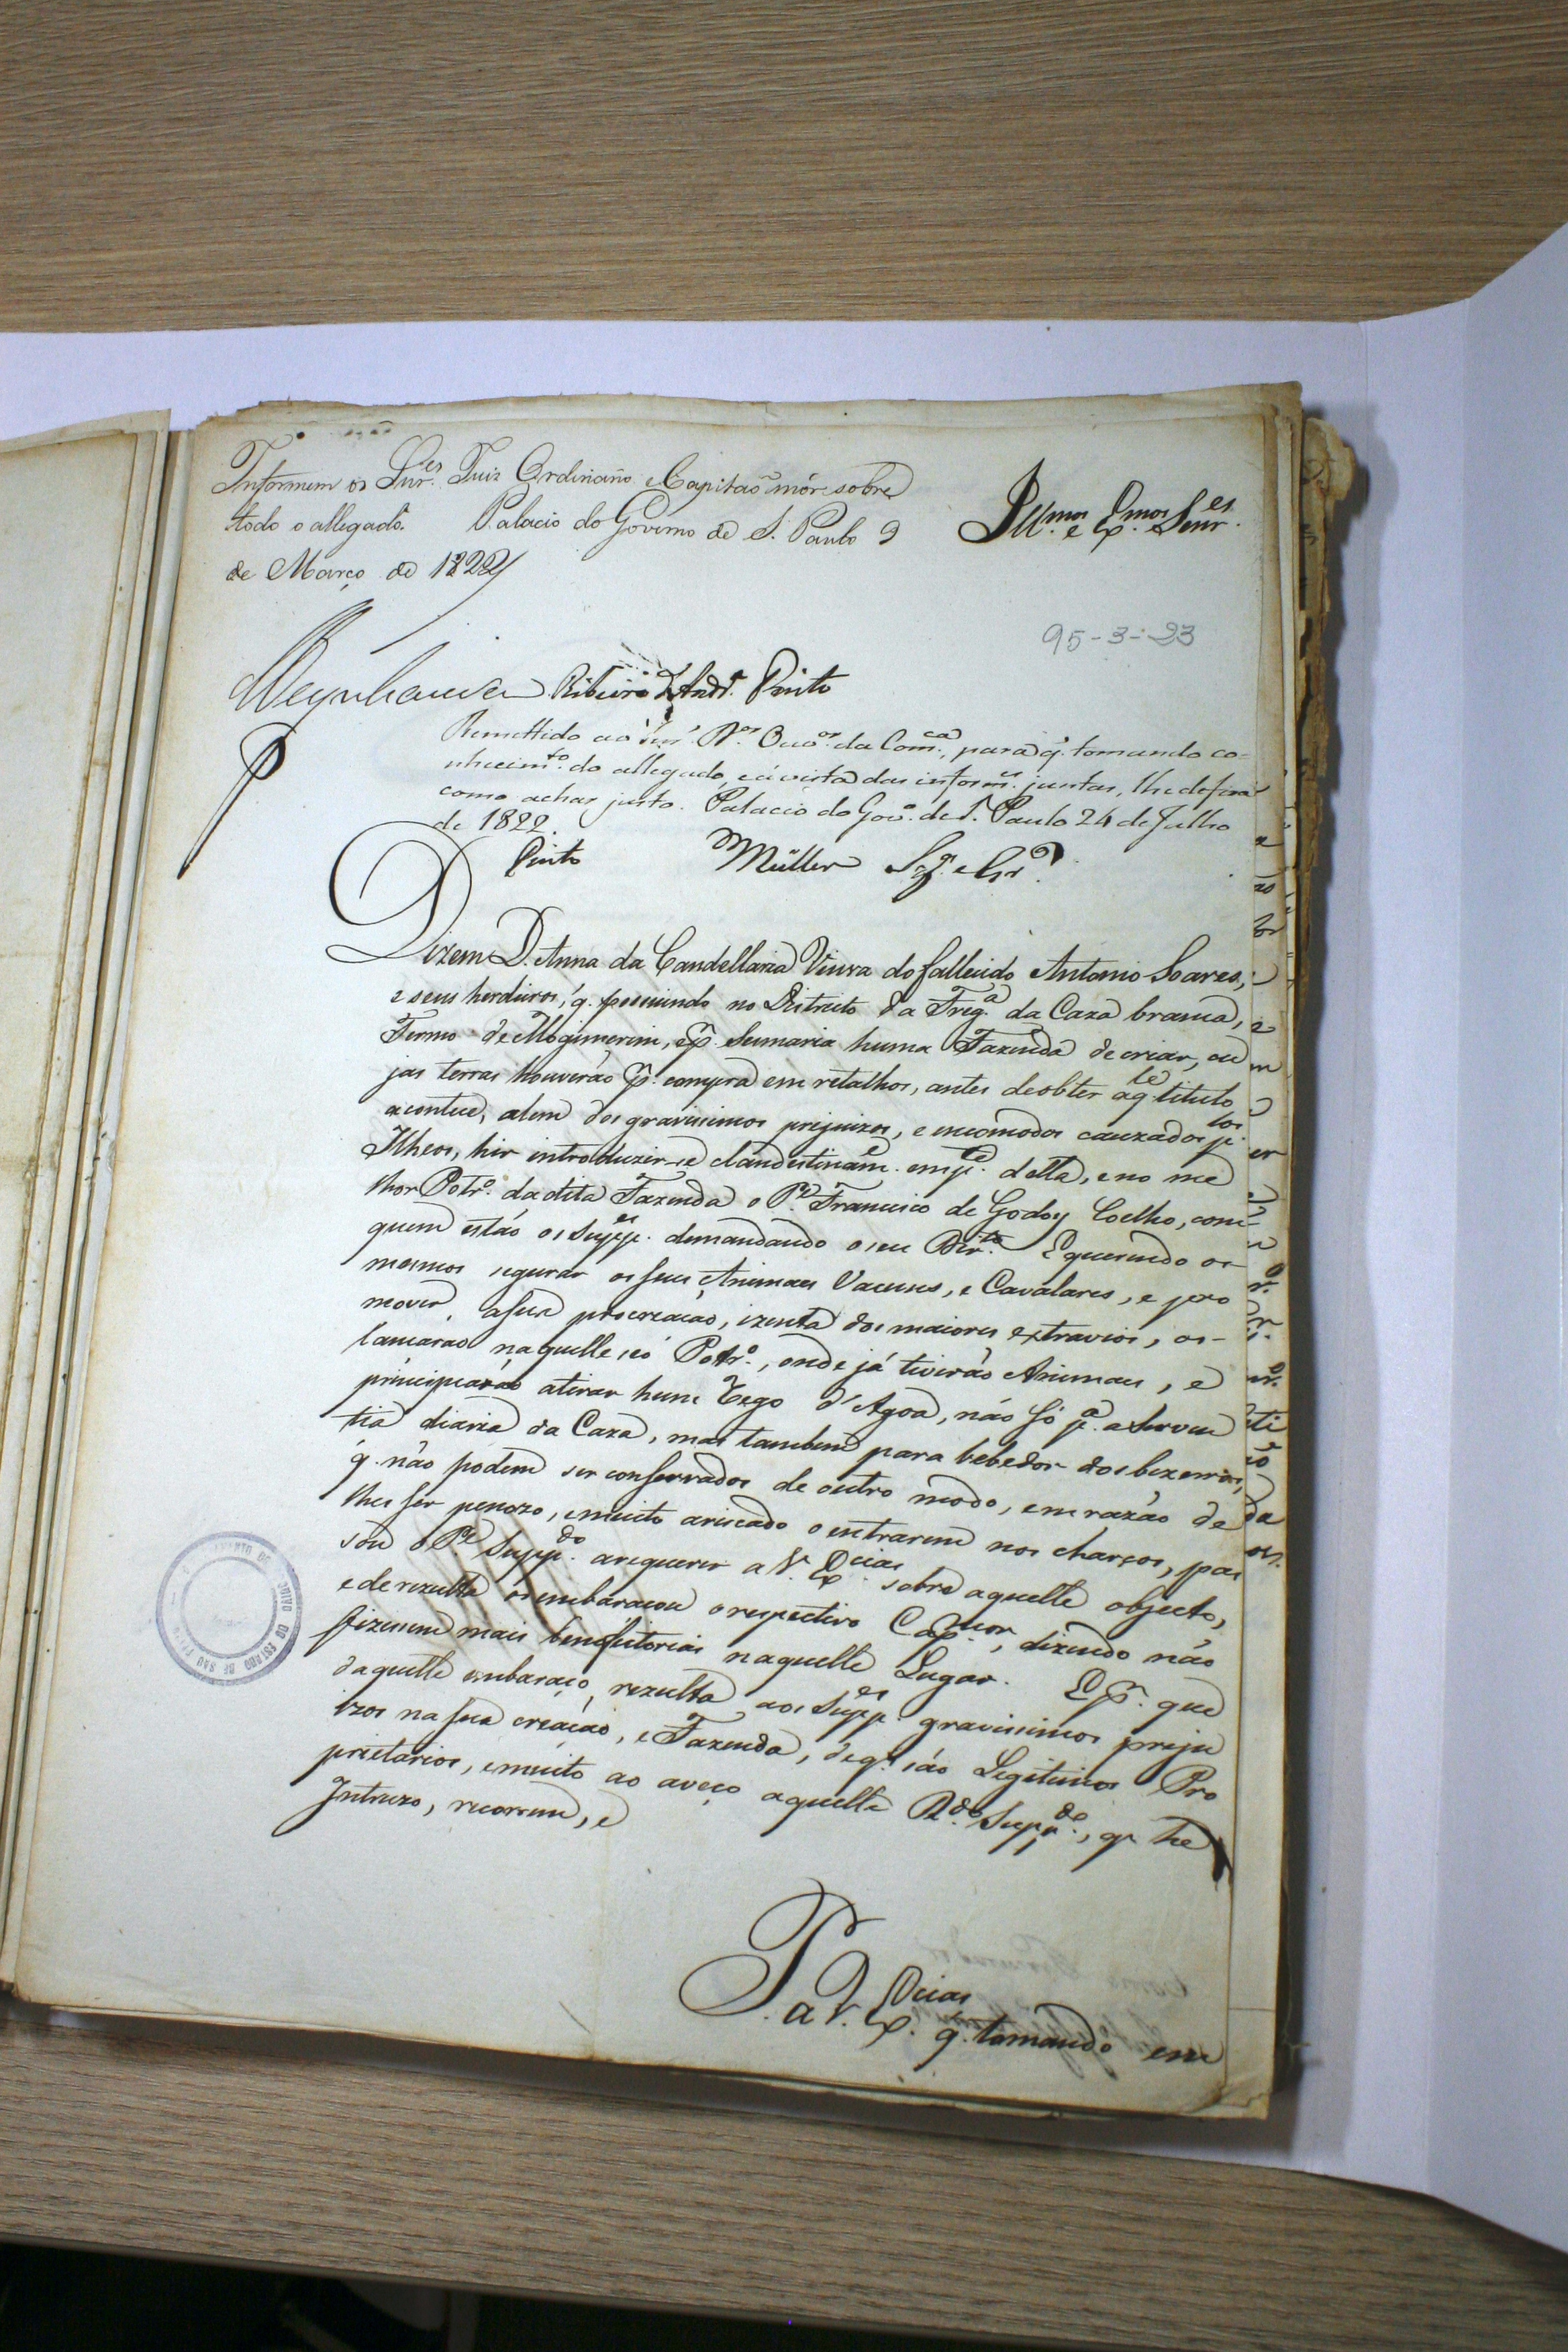 Informem os Snr.es Juiz Ordinario e Capitaõ mór sobre
todo o allegado. Palacio do Governo de S. Paulo 9
de Março de 1822
Ill.mos e Ex.mos Senr.es
95-3-23
Oeynhausen Ribeiro d'Andr.a Pinto
P
Remettido ao Snr. D.or Ouv.or da Com.ca, para q. tomando co-
nhecim.to do allegado, e á vista das inform.es juntas, lhe defira
como achar justo. Palacio do Gov.o de S. Paulo 24 de Julho
de 1822.
Pinto Müller
Dizem D. Anna da Candellaria Viuva do fallecido Antonio Soares,
e seus herdeiros, q. possuindo no Districto da Freg.a da Caza branca,
Termo de Mogimerim, p.r Sesmaria huma Fazenda de criar, cu
jas terras houverão p.r compra em retalhos, antes de obter aq.le titulo
acontece, alem dos gravissimos prejuizos, e encomodos cauzados p.los
Ilheos, hir introduzir-se clandestinam.e em p.te della, e no me
lhor Potr.o da dita Fazenda o P.e Francisco de Godoy Coelho, com
quem estão os Supp.es demandando o seu Dir.to E querendo os
mesmos segurar os seus Animaes Vacuns, e Cavalares, e pro
mover a sua procreação, izenta dos maiores extravios, os
lançarão naquelle só Potr.o, onde já tiverão Animaes, e
principiarão a tirar hum Rego d'Agoa, não só p.a a serven
tia diaria da Caza, mas tambem para bebedor dos bezerros,
q. não podem ser conservados de outro modo, em razão de
lhes ser penozo, e muito ariscado o entrarem nos charcos, pas
sou o P.e Supp.do a requerer a V. Ex.cias sobre aquelle objecto,
e de rezulta os embaraçou o respectivo Cap.mor, dizendo não
fizessem mais benefeitorias naquelle Lugar. E p.r que
daquelle embaraço, rezulta aos Supp.es gravissimos preju
izos na sua creação, e Fazenda, de q. são Legitimos Pro
prietarios, e muito ao aveço aquelle R.do Supp.do, q. he
Intruzo, recorrem, e
P. a V. Ex.cias q. tomando em